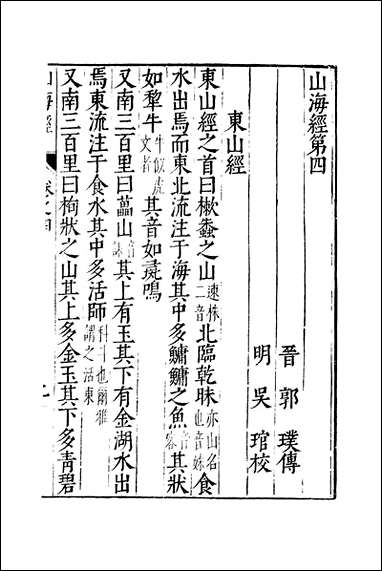 山海經第四
晉郭璞傳
明吳琯校
東山經
東山經之首曰樕䖪之山速株二音北臨乾昧亦山名也音妹食
水出焉而東北流注于海其中多鱅鱅之魚音容其狀
如犂牛牛似虎文者其音如彘鳴
又南三百里曰藟山音誄其上有玉其下有金湖水出
焉東流注于食水其中多活師科斗也爾雅謂之活東
又南三百里曰栒狀之山其上多金玉其下多青碧
山海經
卷之四
一